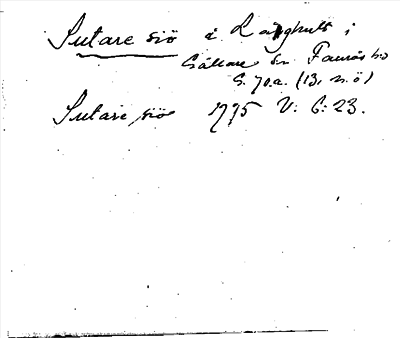 Sutare siö å Långhult i
Källna sn Faurås hd
S. 70.a. (13, n. ö)
Sutare siö 1775 V: 6: 23.